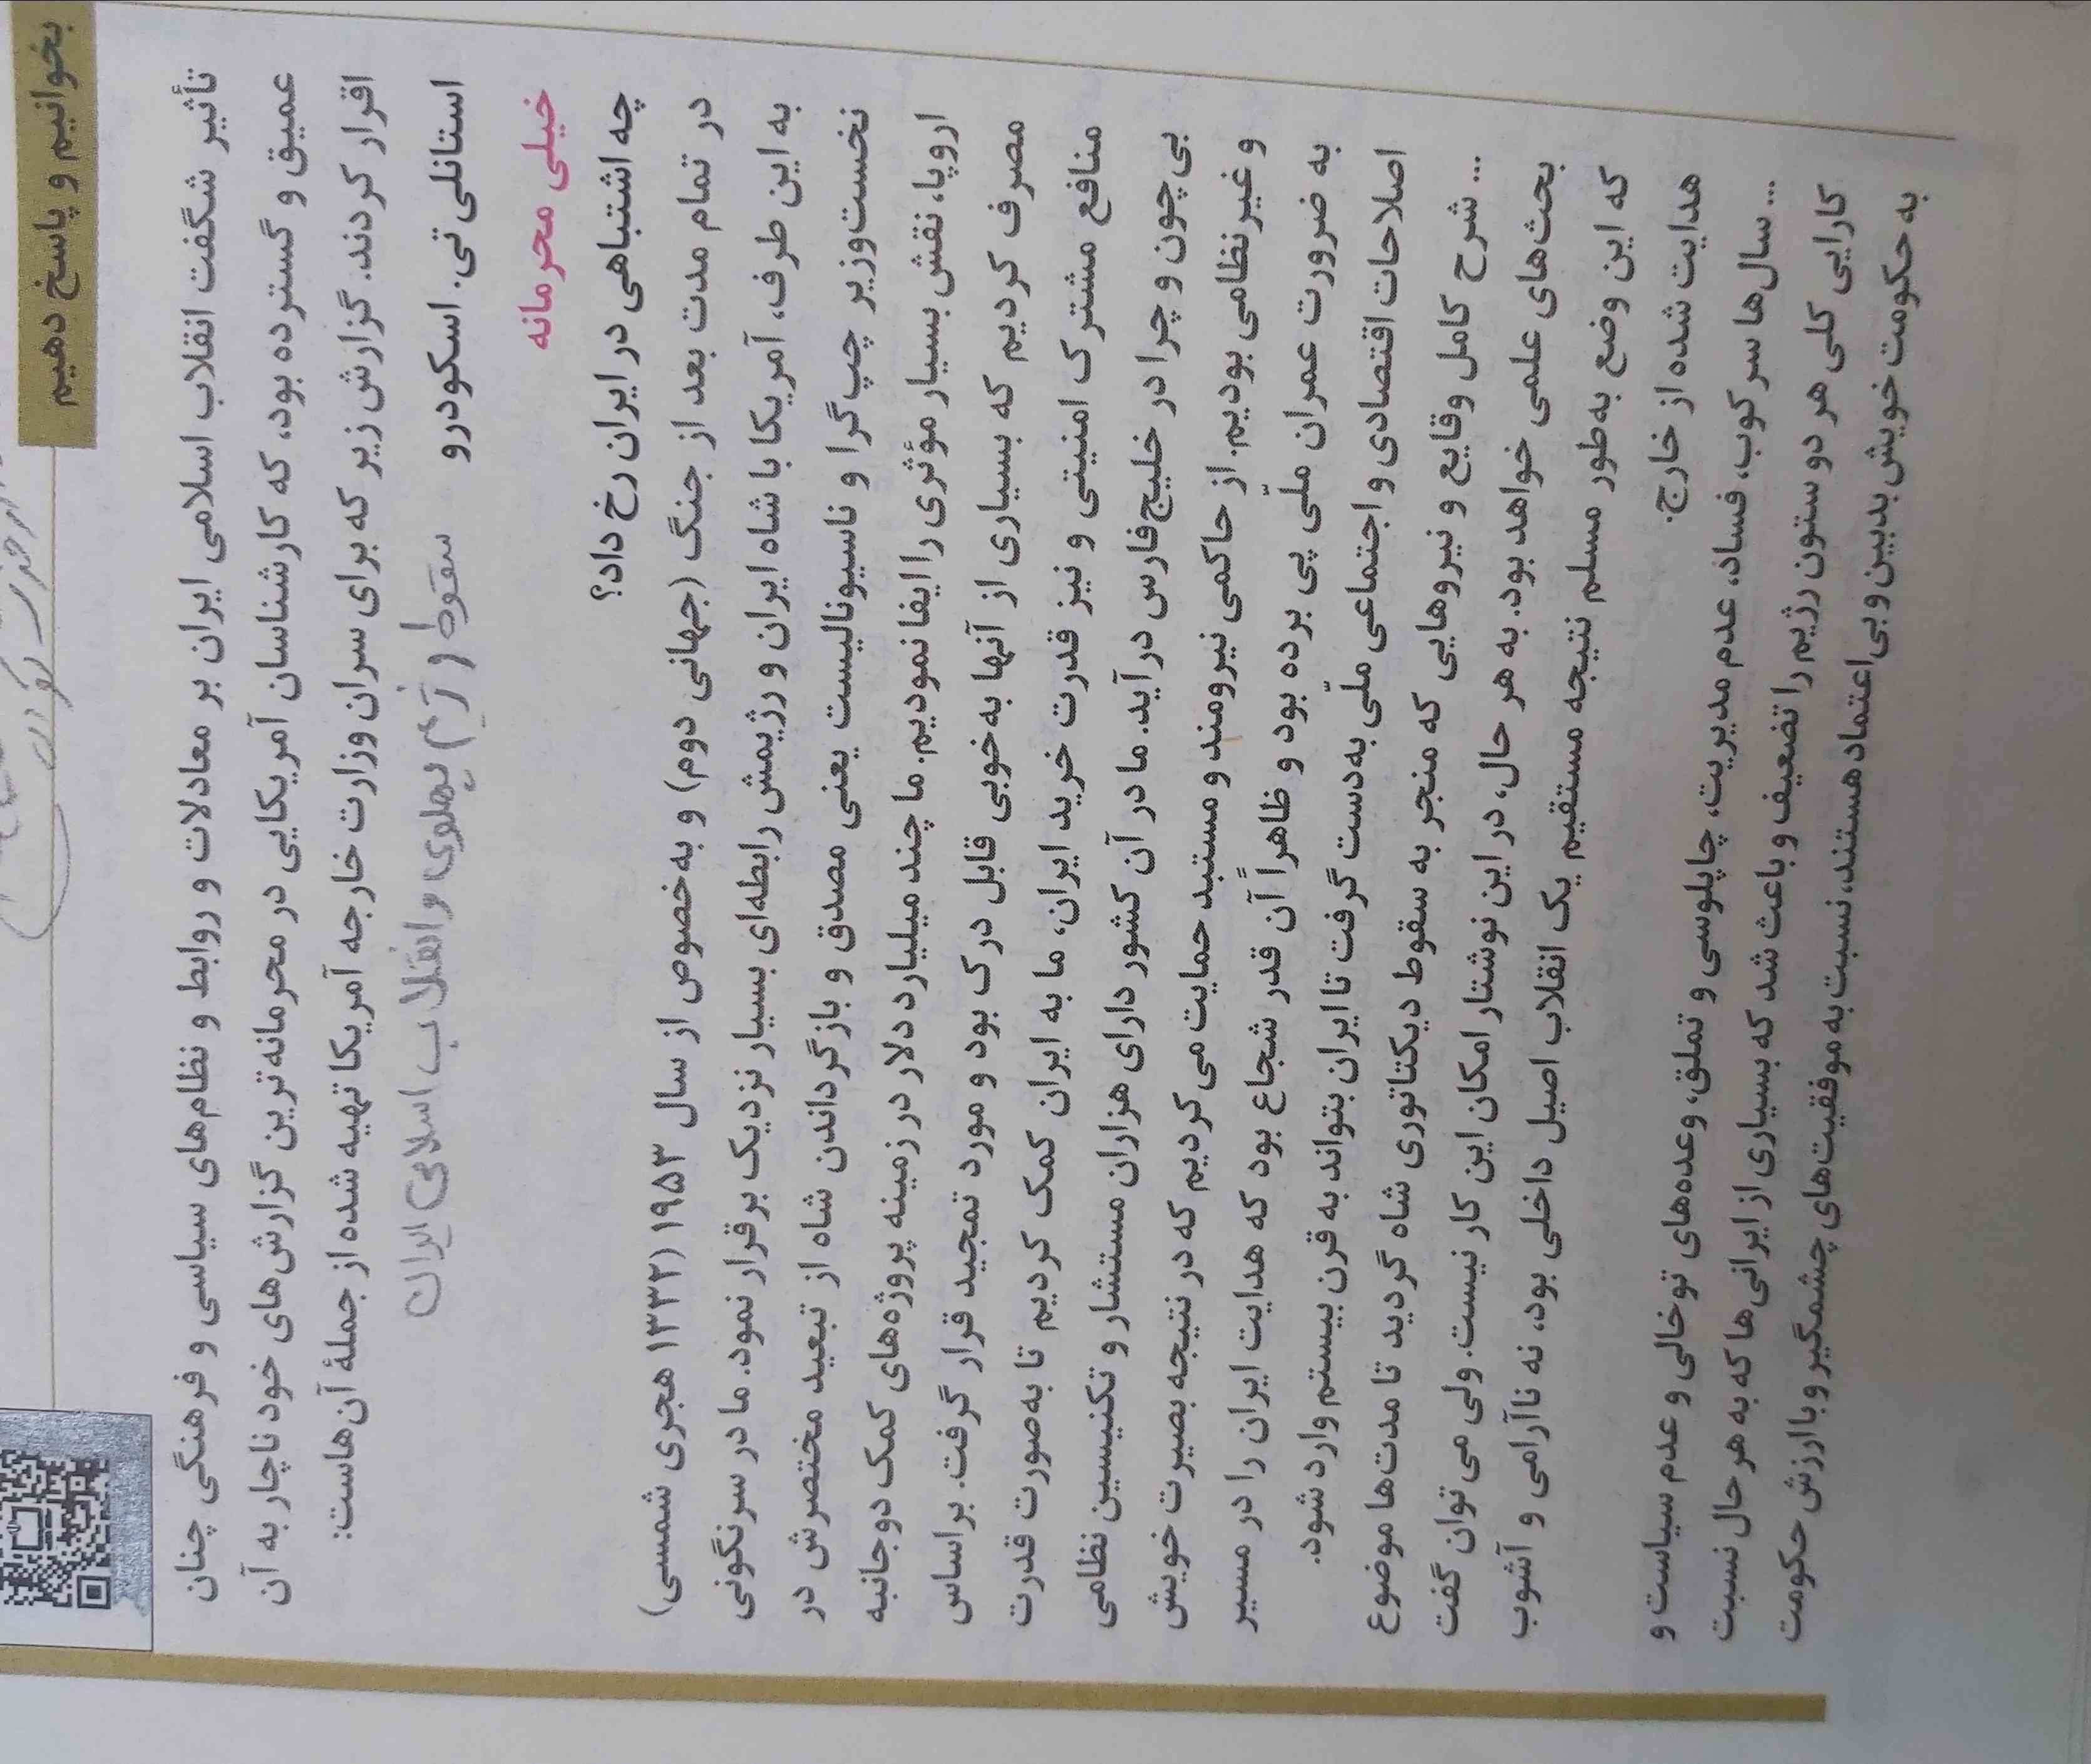 بخوانیم و پاسخ دهیم
تأثیر شگفت انقلاب اسلامی ایران بر معادلات و روابط و نظام‌های سیاسی و فرهنگی چنان
عمیق و گسترده بود، که کارشناسان آمریکایی در محرمانه‌ترین گزارش‌های خود ناچار به آن
اقرار کردند. گزارش زیر که برای سران وزارت خارجه آمریکا تهیه شده از جملهٔ آن‌هاست:
سقوط رژیم پهلوی و انقلاب اسلامی ایران
استانلی تی. اسکودرو
خیلی محرمانه
چه اشتباهی در ایران رخ داد؟
در تمام مدت بعد از جنگ (جهانی دوم) و به‌خصوص از سال ۱۹۵۳ (۱۳۳۲ هجری شمسی)
به این طرف، آمریکا با شاه ایران و رژیمش رابطه‌ای بسیار نزدیک برقرار نمود. ما در سرنگونی
نخست‌وزیر چپ‌گرا و ناسیونالیست یعنی مصدق و بازگرداندن شاه از تبعید مختصرش در
اروپا، نقش بسیار مؤثری را ایفا نمودیم. ما چند میلیارد دلار در زمینه پروژه‌های کمک دوجانبه
مصرف کردیم که بسیاری از آنها به‌خوبی قابل درک بود و مورد تمجید قرار گرفت. براساس
منافع مشترک امنیتی و نیز قدرت خرید ایران، ما به ایران کمک کردیم تا به‌صورت قدرت
بی‌چون و چرا در خلیج‌فارس درآید. ما در آن کشور دارای هزاران مستشار و تکنیسین نظامی
و غیرنظامی بودیم. از حاکمی نیرومند و مستبد حمایت می‌کردیم که در نتیجه بصیرت خویش
به ضرورت عمران ملّی پی برده بود و ظاهراً آن قدر شجاع بود که هدایت ایران را در مسیر
اصلاحات اقتصادی و اجتماعی ملّی به‌دست گرفت تا ایران بتواند به قرن بیستم وارد شود.
... شرح کامل وقایع و نیروهایی که منجر به سقوط دیکتاتوری شاه گردید تا مدت‌ها موضوع
بحث‌های علمی خواهد بود. به هر حال، در این نوشتار امکان این کار نیست. ولی می‌توان گفت
که این وضع به‌طور مسلم نتیجه مستقیم یک انقلاب اصیل داخلی بود، نه ناآرامی و آشوب
هدایت شده از خارج.
... سال‌ها سرکوب، فساد، عدم مدیریت، چاپلوسی و تملق، وعده‌های توخالی و عدم سیاست و
کارایی کلی هر دو ستون رژیم را تضعیف و باعث شد که بسیاری از ایرانی‌ها که به هر حال نسبت
به حکومت خویش بدبین و بی‌اعتماد هستند، نسبت به موفقیت‌های چشمگیر و باارزش حکومت